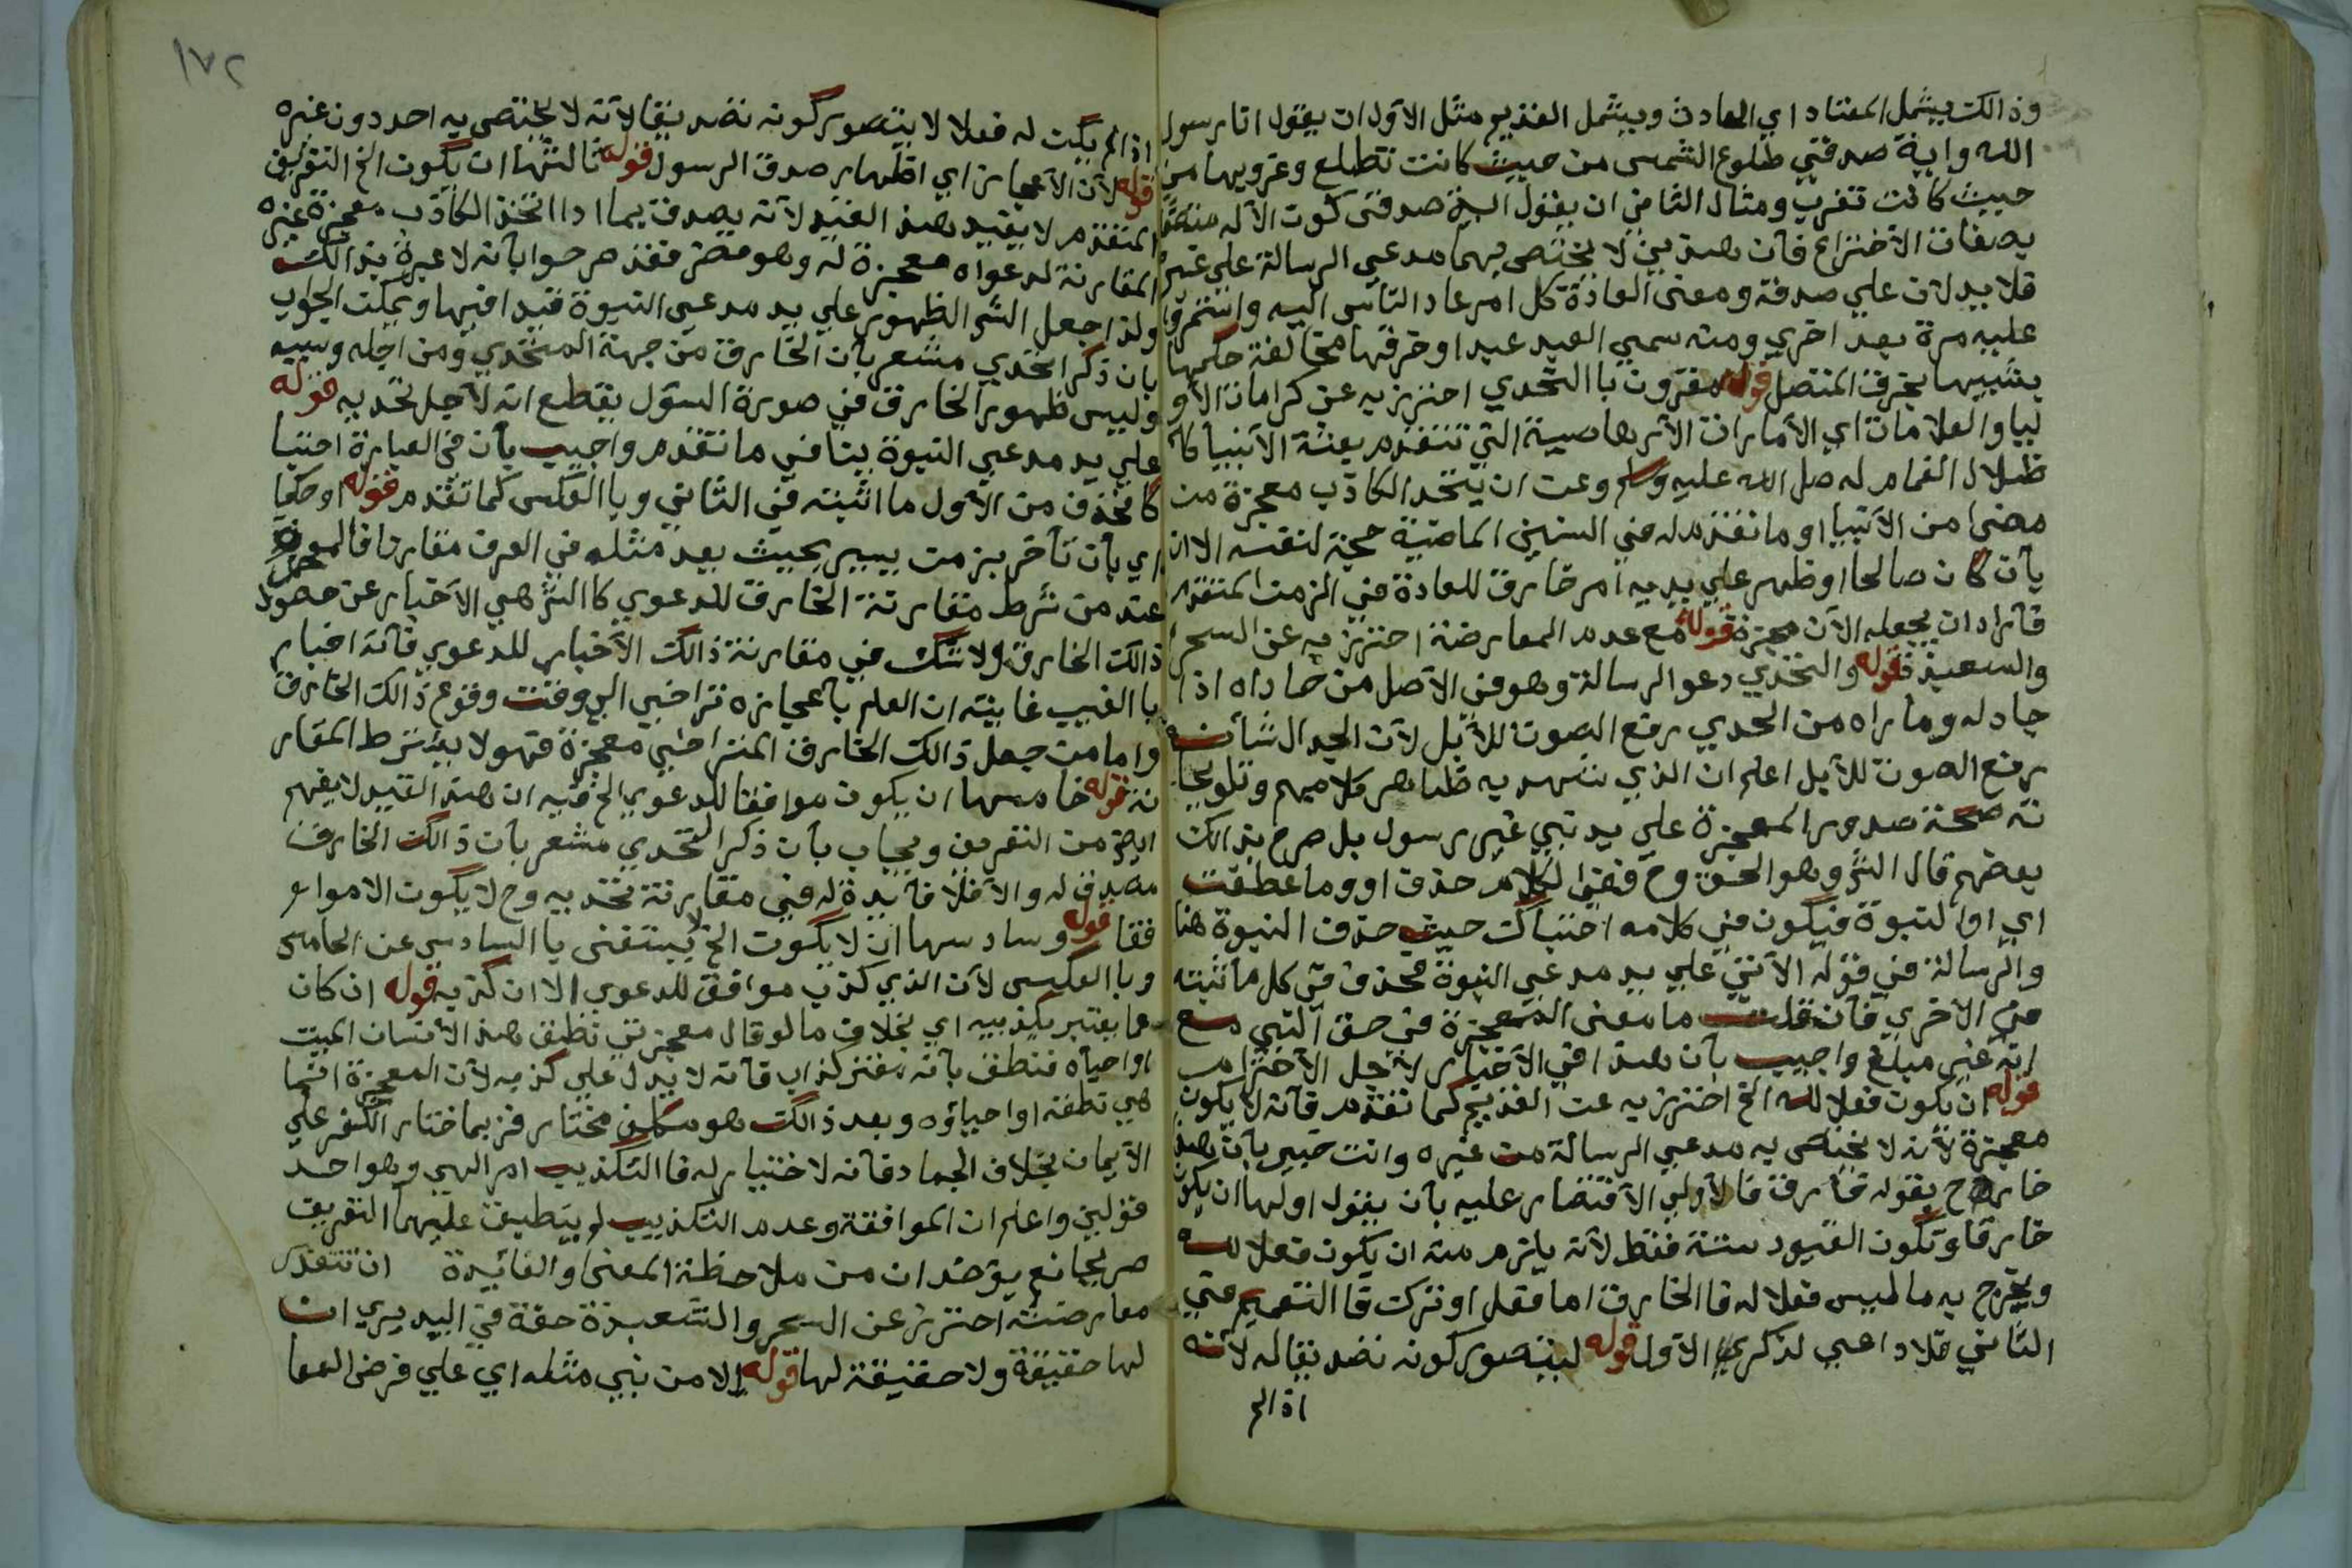 وذالك يشمل المعتاد اي الحادث ويشمل القديم مثل الاول ان يقول انا رسول
الله واية صدقي طلوع الشمس من حيث كانت تطلع وغروبها من
حيث كانت تغرب ومثال الثاني ان يقول اية صدقي كون الآله متصفا
بصفات الاختراع فان هذين لا يختص بهما مدعي الرسالة علي غيره
فلا يدلان علي صدقه ومعنى العادة كل امر عاد الناس اليه واستمروا
عليه مرة بعد اخري ومنه سمي العيد عيدا وخرقها مخالفة حكمها
يشبيها بخرق المتصل قوله مقرون با التحدي احترز به عن كرامات الأو
ليا والعلامات اي الأمارات الأرهاصية التي تتقدم بعثة الأنبيا كا
ظلال الغمام له صل الله عليه وسلم وعن ان يتخد الكاذب معجزة من
مضى من الأنبيا او ما تقدم له في السنين الماضية حجة لنفسه الا ان
يأن كان صالحا وظهر علي يديه امر خارق للعادة في الزمن المتقدم
فأراد ان يجعله الآن معجزة قوله مع عدم المعارضة احترز به عن السحر
والسعيذ قوله والتحدي دعو الرسالة وهو في الأصل من حاداه اذا
جادله وماراه من الحدي رفع الصوت للأبل لأن الجدال شأنه
رفع الصوت للأبل اعلم ان الذي تشهد به ظاهر كلامهم وتلويحا
ته صحة صدور المعجزة علي يد نبي غير رسول بل صرح بذالك
بعضهم قال الش وهو الحق وح ففي الكلام حذف او وما عطفت
اي او النبوة فيكون في كلامه احتباك حيث حذف النبوة هنا
والرسالة في قوله الآتي علي يد مدعي النبوة فحذف في كل ما اثبته
في الاخري فان قلت ما معنى المعجزة في حق النبي مع
انه غير مبلغ واجيب بأن هذا في الأخيار لأجل الأحترام
قوله ان يكون فعلا لله الخ احترز به عن القديم كما تقدم فانه لا يكون
معجزة لأنه لا يختص به مدعي الرسالة من غيره وانت خبير بأن هذا
خارج بقوله خارق فا الأولي الأقتصار عليه بأن يقول اولها ان يكون
خارقا وتكون القيود ستة فقط لأنه يلزم منه ان يكون فعلا لله
ويخرج به ما ليس فعلا له فا الخارق اما فعل او ترك فا التعميم في
الثاني فلا داعي لذكر الاول قوله ليتصور كونه تصديقا له لأنه
اذ الم
١٧٢
اذ الم يكن له فعلا لا يتصور كونه تصديقا لأنه لا يختص به احد دون غيره
قوله لأن الأعجاز اي اظهار صدق الرسول قوله ثالثها ان يكون الخ التعريف
المتقدم لا يفيد هذ القيد لأنه يصدق بما اذا اتخذ الكاذب معجزة غيره
المقارنة لدعواه معجزة له وهو مضر فقد صرحوا بأنه لا عبرة بذالك
ولذا جعل الش الظهور علي يد مدعي النبوة قيدا فيها ويمكن الجواب
بان ذكر التحدي مشعر بأن الخارق من جهة المتحدي ومن اجله وسببه
وليس ظهور الخارق في صورة السؤل بقطع انه لأجل تحديه قوله
علي يد مدعي النبوة ينافي ما تقدم واجيب بأن في العبارة احتبا
كا فحذف من الأول ما اثبته في الثاني وبا العكس كما تقدم قوله او حكما
اي بأن تأخر بزمن يسير بحيث يعد مثله في العرف مقارنا فالمعجزة
عند من شرط مقارنة الخارق للدعوي كا الش هي الأخبار عن حصول
ذالك الخارق ولا شك في مقارنة ذالك الأخبار للدعوي فانه اخبار
با الغيب غايته ان العلم باعجازه تراخي الي وقت وقوع ذالك الخارق
واما من جعل ذالك الخارق المتراخي معجزة فهو لا يشترط المقار
نة قوله خامسها ان يكون موافقا للدعوي الخ فيه ان هذ القيد لا يفهم
ايض من التعريف ويجاب بأن ذكر التحدي مشعر بأن ذالك الخارق
مصدق له والا فلا فايدة له في مقارنة تحديه وح لا يكون الا موا
فقا قوله وسادسها ان لا يكون الخ لا يستغنى با السادس عن الخامس
وبا العكس لأن الذي كذب موافق للدعوي الا ان كذبه قوله ان كان
مما يعتبر تكذيبه اي بخلاف ما لو قال معجزتي نطق هذ الأنسان الميت
او احياه فنطق بأنه مفتر كذاب فأنه لا يدل علي كذبه لأن المعجزة انما
هي نطقه او احياؤه وبعد ذالك هو مكلف مختار فربما اختار الكفر علي
الأيمان بخلاف الجماد فأنه لا ختيار له فا التكذيب امر الهي وهو احد
قولين واعلم ان الموافقة وعدم التكذيب لم ينطبق عليهما التعريف
صريحا نع يؤخذ ان من ملاحظة المعنى والفائيدة ان تتعذر
معارضته احترز عن السحر والشعبذة خفة في اليد يري ان
لها حقيقة ولا حقيقة لها قوله الا من نبي مثله اي علي فرض المعا